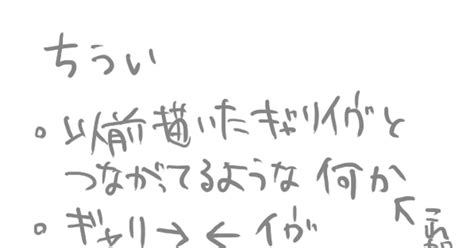 ちうい
。以前描いたギャリイヴと
つながってるような何か
。ギャリ→←イヴ